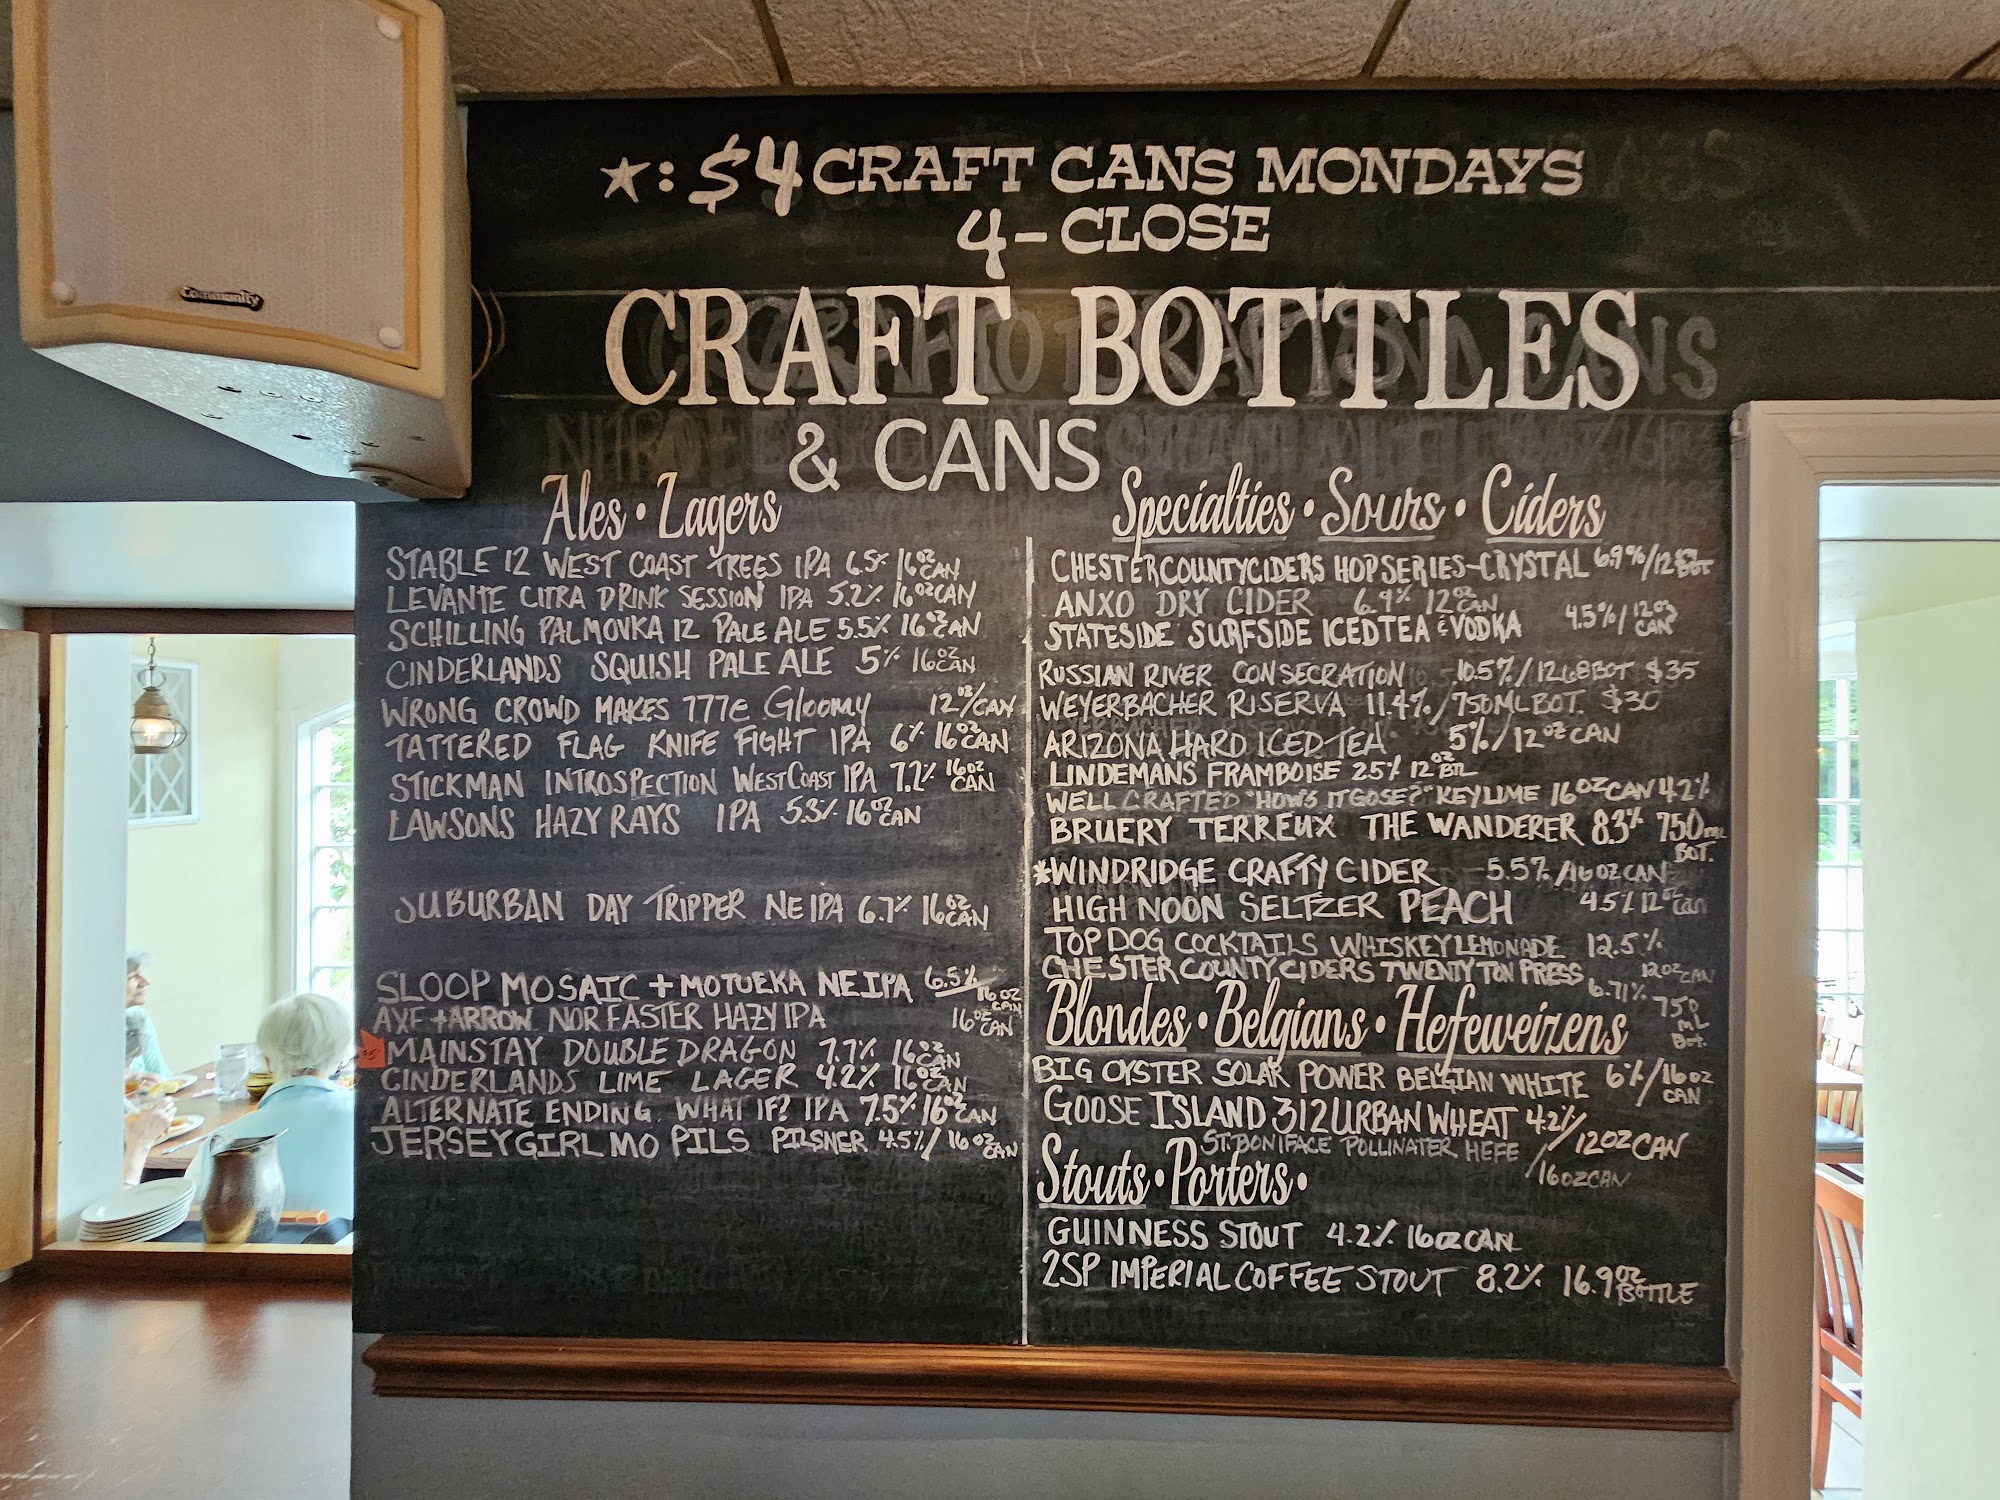 Community
★: $4 CRAFT CANS MONDAYS
4-CLOSE
CRAFT BOTTLES
& CANS
Ales • Lagers
STABLE 12 WEST COAST TREES IPA 6.5% 16OZ CAN
LEVANTE CITRA DRINK SESSION IPA 5.2% 16OZ CAN
SCHILLING PALMOVKA 12 PALE ALE 5.5% 16OZ CAN
CINDERLANDS SQUISH PALE ALE 5% 16OZ CAN
WRONG CROWD MAKES 777e Gloomy 12OZ/CAN
TATTERED FLAG KNIFE FIGHT IPA 6% 16OZ CAN
STICKMAN INTROSPECTION WEST COAST IPA 7.2% 16OZ CAN
LAWSONS HAZY RAYS IPA 5.3% 16OZ CAN
SUBURBAN DAY TRIPPER NE IPA 6.7% 16OZ CAN
SLOOP MOSAIC + MOTUEKA NEIPA 6.5% 16OZ CAN
AXE + ARROW NOR EASTER HAZY IPA 16OZ CAN
MAINSTAY DOUBLE DRAGON 7.7% 16OZ CAN
CINDERLANDS LIME LAGER 4.2% 16OZ CAN
ALTERNATE ENDING WHAT IF? IPA 7.5% 16OZ CAN
JERSEY GIRL MO PILS PILSNER 4.5% / 16OZ CAN
Specialties • Sours • Ciders
CHESTER COUNTY CIDERS HOP SERIES-CRYSTAL 6.9%/12OZ BOT
ANXO DRY CIDER 6.9% 12OZ CAN
STATESIDE SURFSIDE ICED TEA & VODKA 4.5%/12OZ CAN
RUSSIAN RIVER CONSECRATION 10.5%/12.68 BOT $35
WEYERBACHER RISERVA 11.4%/750ML BOT. $30
ARIZONA HARD ICED TEA 5%/12OZ CAN
LINDEMANS FRAMBOISE 2.5% 12OZ BTL
WELL CRAFTED "HOW'S IT GOSE?" KEY LIME 16OZ CAN 4.2%
BRUERY TERREUX THE WANDERER 8.3% 750ML BOT.
*WINDRIDGE CRAFTY CIDER 5.5%/16OZ CAN
HIGH NOON SELTZER PEACH 4.5% 12OZ can
TOP DOG COCKTAILS WHISKEY LEMONADE 12.5% 12OZ CAN
CHESTER COUNTY CIDERS TWENTY TON PRESS 6.71% 750 ML Bot.
Blondes • Belgians • Hefeweizens
BIG OYSTER SOLAR POWER BELGIAN WHITE 6%/16OZ CAN
GOOSE ISLAND 312 URBAN WHEAT 4.2%/12OZ CAN
ST. BONIFACE POLLINATER HEFE /16OZ CAN
Stouts • Porters •
GUINNESS STOUT 4.2% 16OZ CAN
2SP IMPERIAL COFFEE STOUT 8.2% 16.9OZ BOTTLE